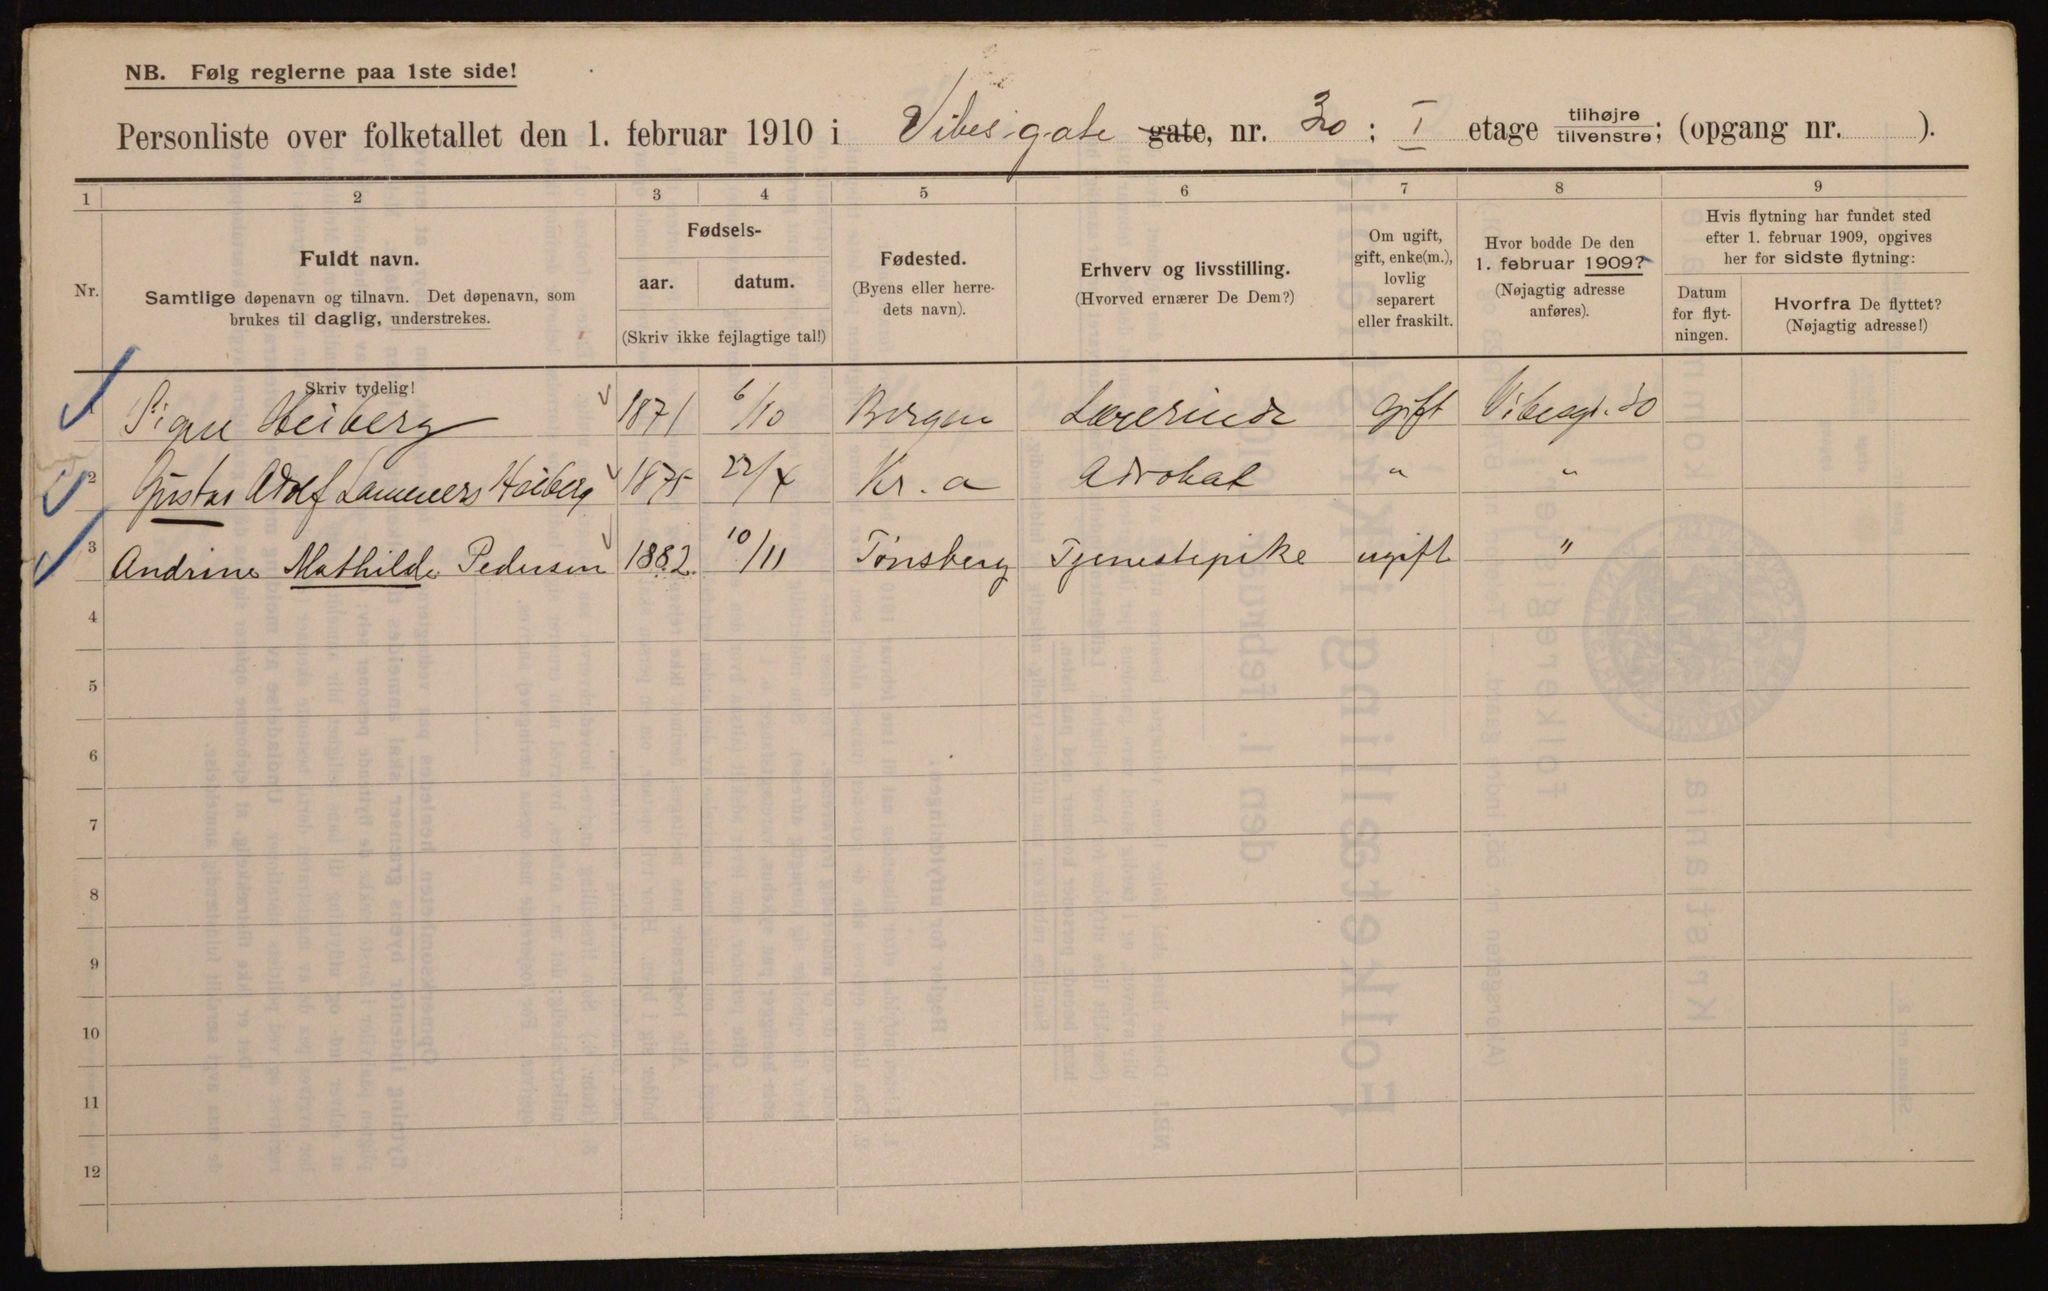 NB. Følg reglerne paa 1ste side!
Personliste over folketallet den 1. februar 1910 i Vibesgate gate, nr. 30 : I etage tilhøjre tilvenstre; (opgang nr. ).
1 2 3 4 5 6 7 8 9
Nr.
Fuldt navn.
Samtlige døpenavn og tilnavn. Det døpenavn, som
brukes til daglig, understrekes.
Fødsels-
aar. datum.
(Skriv ikke fejlagtige tal!)
Fødested.
(Byens eller herre-
dets navn).
Erhverv og livsstilling.
(Hvorved ernærer De Dem?)
Om ugift,
gift, enke(m.),
lovlig
separert
eller fraskilt.
Hvor bodde De den
1. februar 1909?
(Nøjagtig adresse
anføres).
Hvis flytning har fundet sted
efter 1. februar 1909, opgives
her for sidste flytning:
Datum
for flyt-
ningen.
Hvorfra De flyttet?
(Nøjagtig adresse!)
Skriv tydelig!
1 Signe Heiberg 1871 6/10 Bergen Lærerinde gift Vibesgt. 30
2 Gustav Adolf Lammers Heiberg 1875 22/4 Kr.a Advokat " "
3 Andrine Mathilde Pedersen 1882 10/11 Tønsberg Tjenestepike ugift "
4
5
6
7
8
9
10
11
12